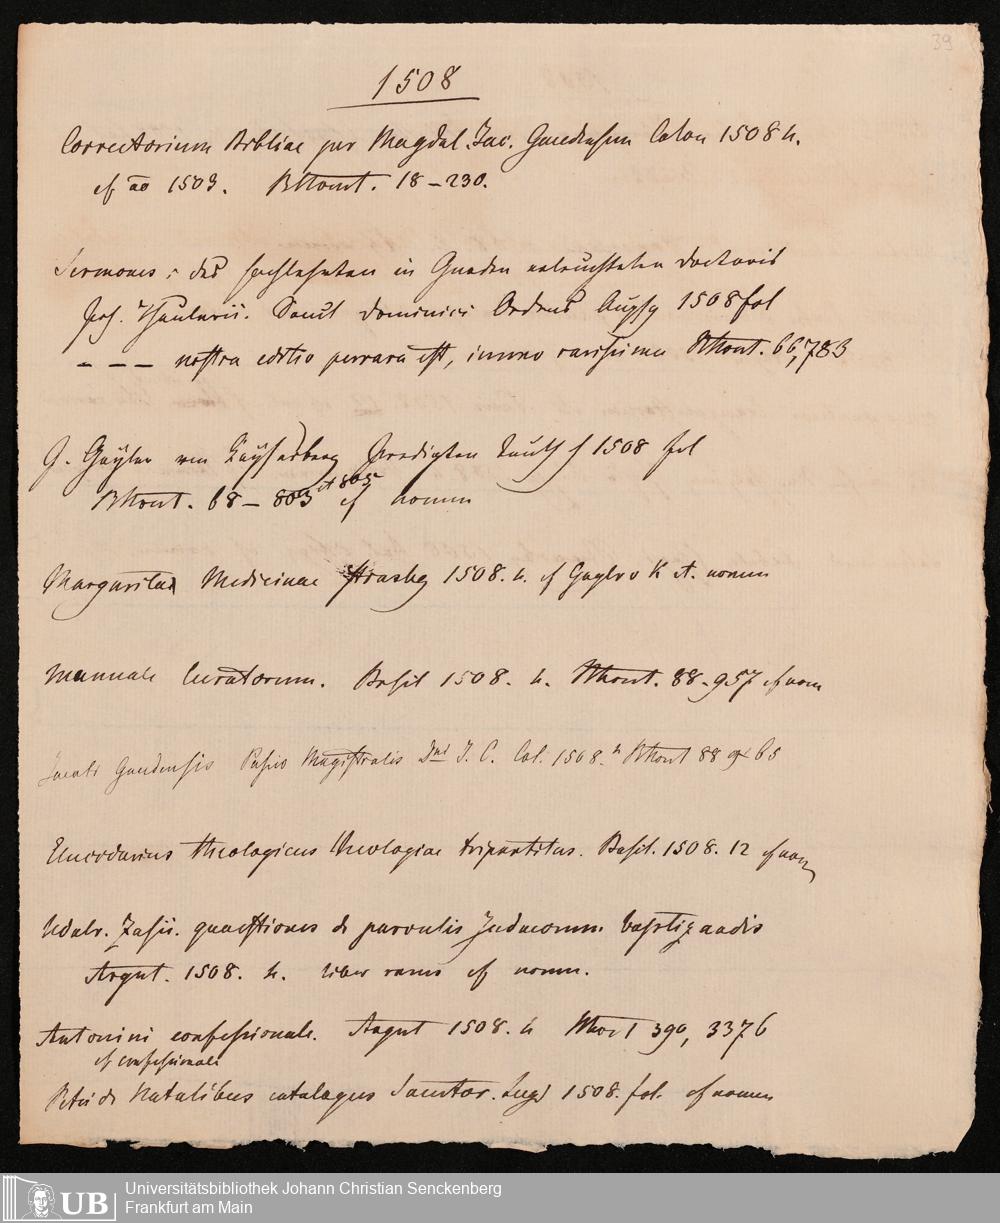 39
1508
Correctorium Bibliae per Magdal. Jac. Gaudensem Colon 1508 4.
cf ao 1503. BMont. 18-230.
Sermones: des hochlehrten in Gnaden erleuchteten doctoris
Joh. Thaulerii. Sanct dominici Ordens Augsp 1508 fol
- - - nostra editio perrara est, immo rarissima BMont. 66,783
J. Gayler von Kaysersberg Predigten teutsch 1508 fol
BMont. 68-803 et 805 cf nomen
Margarita Medicinae Strasbg 1508. 4. cf Gayler v K et. nomen
Manuale Curatorum. Basil 1508. 4. BMont. 88-957 cf nom
Jacobi Gaudensis Passio Magistralis Dni J. C. Col. 1508. 4 BMont 88 965
Elucidarius theologicus theologiae tripartitus. Basil. 1508. 12 cf nom
Udalr. Zasii. quaestiones de parvulis Judaeorum baptizandis
Argnt. 1508. 4. liber rarus cf nomen.
Antonini confessionale. Argnt 1508. 4 390, 3376
cf confessionale
Petri de Natalibus catalogus Sanctor. Lugd 1508. fol. cf nomen
UB
Universitätsbibliothek Johann Christian Senckenberg
Frankfurt am Main